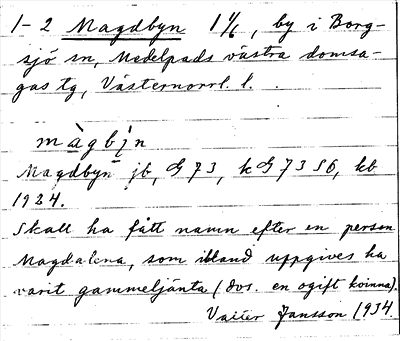 1-2 Magdbyn 1 1/6, by i Borg-
sjö sn, Medelpads västra domsa-
gas tg, Västernorrl. l.
màgbỵn
Magdbyn jb, G 73, kG 73 S6, kb
1924.
Skall ha fått namn efter en person
Magdalena, som ibland uppgives ha
varit gammeljänta (dvs. en ogift kvinna).
Valter Jansson 1934